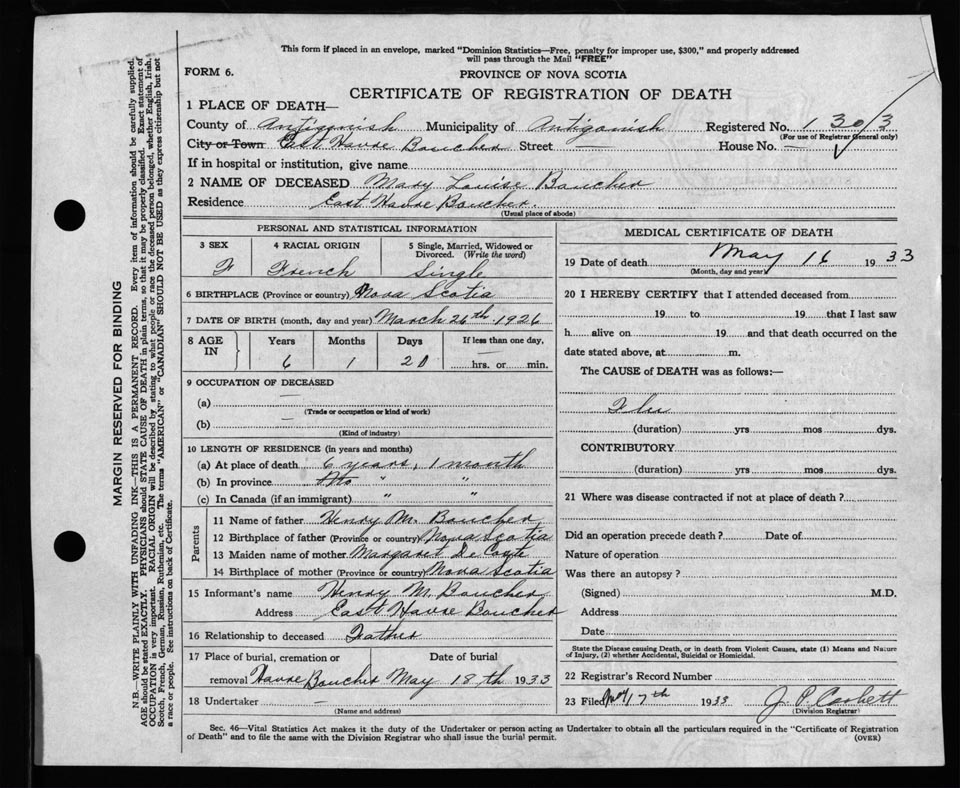 This form if placed in an envelope, marked "Dominion Statistics—Free, penalty for improper use, $300," and properly addressed
will pass through the Mail "FREE"
FORM 6.
PROVINCE OF NOVA SCOTIA
CERTIFICATE OF REGISTRATION OF DEATH
1 PLACE OF DEATH—
County of Antigonish Municipality of Antigonish Registered No. 1303
(For use of Registrar General only)
City or Town East Havre Boucher Street — House No. —
If in hospital or institution, give name
2 NAME OF DECEASED Mary Louise Boucher
Residence East Havre Boucher.
(Usual place of abode)
PERSONAL AND STATISTICAL INFORMATION
3 SEX 4 RACIAL ORIGIN 5 Single, Married, Widowed or
Divorced. (Write the word)
F French Single
6 BIRTHPLACE (Province or country) Nova Scotia
7 DATE OF BIRTH (month, day and year) March 26th 1926
8 AGE IN Years Months Days If less than one day,
6 1 20 — hrs. or min.
9 OCCUPATION OF DECEASED
(a) —
(Trade or occupation or kind of work)
(b) —
(Kind of industry)
10 LENGTH OF RESIDENCE (in years and months)
(a) At place of death 6 years, 1 month
(b) In province " "
(c) In Canada (if an immigrant) " "
Parents
11 Name of father Henry M. Boucher
12 Birthplace of father (Province or country) Nova Scotia
13 Maiden name of mother Margaret De Coste
14 Birthplace of mother (Province or country) Nova Scotia
15 Informant's name Henry M. Boucher
Address East Havre Boucher
16 Relationship to deceased Father
17 Place of burial, cremation or Date of burial
removal Havre Boucher May 18th 1933
18 Undertaker —
(Name and address)
MEDICAL CERTIFICATE OF DEATH
19 Date of death May 16 1933
(Month, day and year)
20 I HEREBY CERTIFY that I attended deceased from
19 to 19 that I last saw
h alive on 19 and that death occurred on the
date stated above, at m.
The CAUSE of DEATH was as follows:—
Flu
(duration) yrs mos dys.
CONTRIBUTORY
(duration) yrs mos dys.
21 Where was disease contracted if not at place of death ?
Did an operation precede death ? Date of
Nature of operation
Was there an autopsy ?
(Signed) M.D.
Address
Date
State the Disease causing Death, or in death from Violent Causes, state (1) Means and Nature
of Injury, (2) whether Accidental, Suicidal or Homicidal.
22 Registrar's Record Number
23 Filed 17th 1933 J. P. Corbett
(Division Registrar)
Sec. 46—Vital Statistics Act makes it the duty of the Undertaker or person acting as Undertaker to obtain all the particulars required in the "Certificate of Registration
of Death" and to file the same with the Division Registrar who shall issue the burial permit.
(OVER)
MARGIN RESERVED FOR BINDING
N.B.—WRITE PLAINLY WITH UNFADING INK—THIS IS A PERMANENT RECORD. Every item of information should be carefully supplied.
AGE should be stated EXACTLY. PHYSICIANS should STATE CAUSE OF DEATH in plain terms, so that it may be properly classified. Exact statement of
OCCUPATION is very important. RACIAL ORIGIN will be described by stating to what people or race the deceased person belonged, whether English, Irish,
Scotch, French, German, Russian, Ruthenian, etc. The terms "AMERICAN" or "CANADIAN" SHOULD NOT BE USED as they express citizenship but not
a race or people. See instructions on back of Certificate.